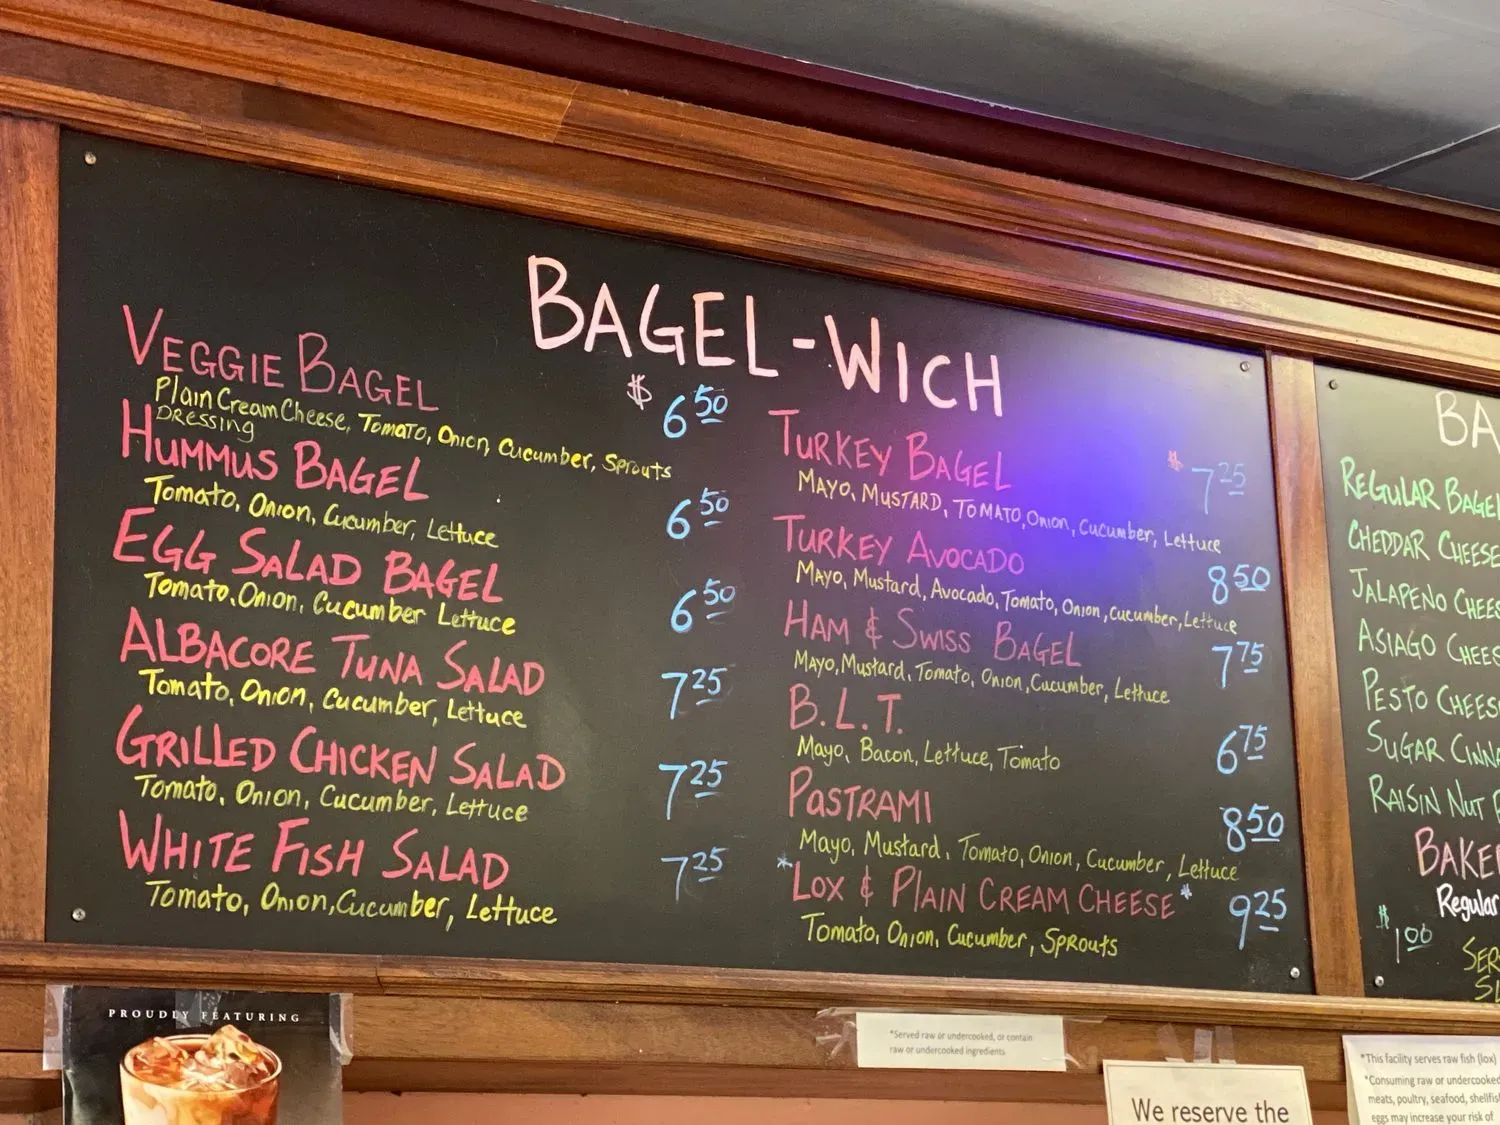 BAGEL-WICH
VEGGIE BAGEL
$ 6 50
Plain Cream Cheese, Tomato, Onion, Cucumber, Sprouts
DRESSING
HUMMUS BAGEL
6 50
Tomato, Onion, Cucumber, Lettuce
EGG SALAD BAGEL
6 50
Tomato, Onion, Cucumber Lettuce
ALBACORE TUNA SALAD
7 25
Tomato, Onion, Cucumber, Lettuce
GRILLED CHICKEN SALAD
7 25
Tomato, Onion, Cucumber, Lettuce
WHITE FISH SALAD
7 25
Tomato, Onion, Cucumber, Lettuce
TURKEY BAGEL
$ 7 25
MAYO, MUSTARD, TOMATO, Onion, Cucumber, Lettuce
TURKEY AVOCADO
8 50
Mayo, Mustard, Avocado, Tomato, Onion, Cucumber, Lettuce
HAM & SWISS BAGEL
7 75
Mayo, Mustard, Tomato, Onion, Cucumber, Lettuce
B.L.T.
6 75
Mayo, Bacon, Lettuce, Tomato
PASTRAMI
8 50
Mayo, Mustard, Tomato, Onion, Cucumber, Lettuce
*LOX & PLAIN CREAM CHEESE*
9 25
Tomato, Onion, Cucumber, Sprouts
BA
REGULAR BAGE
CHEDDAR CHEESE
JALAPENO CHEES
ASIAGO CHEES
PESTO CHEES
SUGAR CINN
RAISIN NUT
BAKE
Regular
$ 1 00
SER
PROUDLY FEATURING
*Served raw or undercooked, or contain
raw or undercooked ingredients
We reserve the
*This facility serves raw fish (lox)
*Consuming raw or undercooked
meats, poultry, seafood, shellfis
eggs may increase your risk of